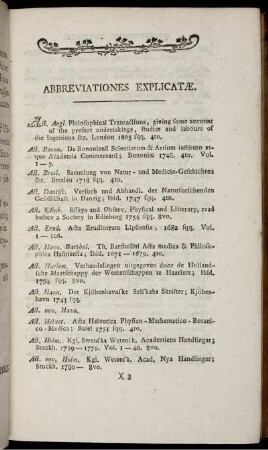 ABBREVIATIONES EXPLICATÆ.
Act. Angl. Philosophical Transactions, giving some account
of the present undertakings, studies and labours of
the Ingenious &c. London 1665 sqq. 4to.
Act. Bonon. De Bononiensi Scientiarum & Artium instituto at-
que Academia Commentarii; Bononiæ 1748. 4to. Vol.
1 — 5.
Act. Bresl. Sammlung von Natur- und Medicin-Geschichten
&c. Breslau 1718 sqq. 4to.
Act. Dantisc. Versuch und Abhandl. der Naturforschenden
Gesellschaft in Danzig; Ibid. 1747 sqq. 4to.
Act. Edinb. Essays and Observ. Physical and Litterary, read
before a Society in Edinburg 1754 sqq. 8vo.
Act. Erud. Acta Eruditorum Lipsiensia; 1682 sqq. Vol.
1 — 106.
Act. Havn. Barthol. Th. Bartholini Acta medica & Philoso-
phica Hafniensia; Ibid. 1671 — 1679. 4to.
Act. Harlem. Verhandelingen uitgegeven door de Hollandi-
sche Maatschappy der Weetenschappen te Haarlem; Ibid.
1754 sqq. 8vo.
Act. Havn. Det Kjöbenhavnske Selskabs Skrifter; Kjöben-
havn 1743 sqq.
Act. nov. Havn.
Act. Helvet. Acta Helvetica Physico-Mathematico-Botani-
co-Medica; Basel 1751 sqq. 4to.
Act. Holm. Kgl. Svenska Wetensk. Academiens Handlingar;
Stockh. 1739 — 1779. Vol. 1 — 40. 8vo.
Act. nov. Holm. Kgl. Wetensk. Acad. Nya Handlingar;
Stockh. 1780 — 8vo.
X 3